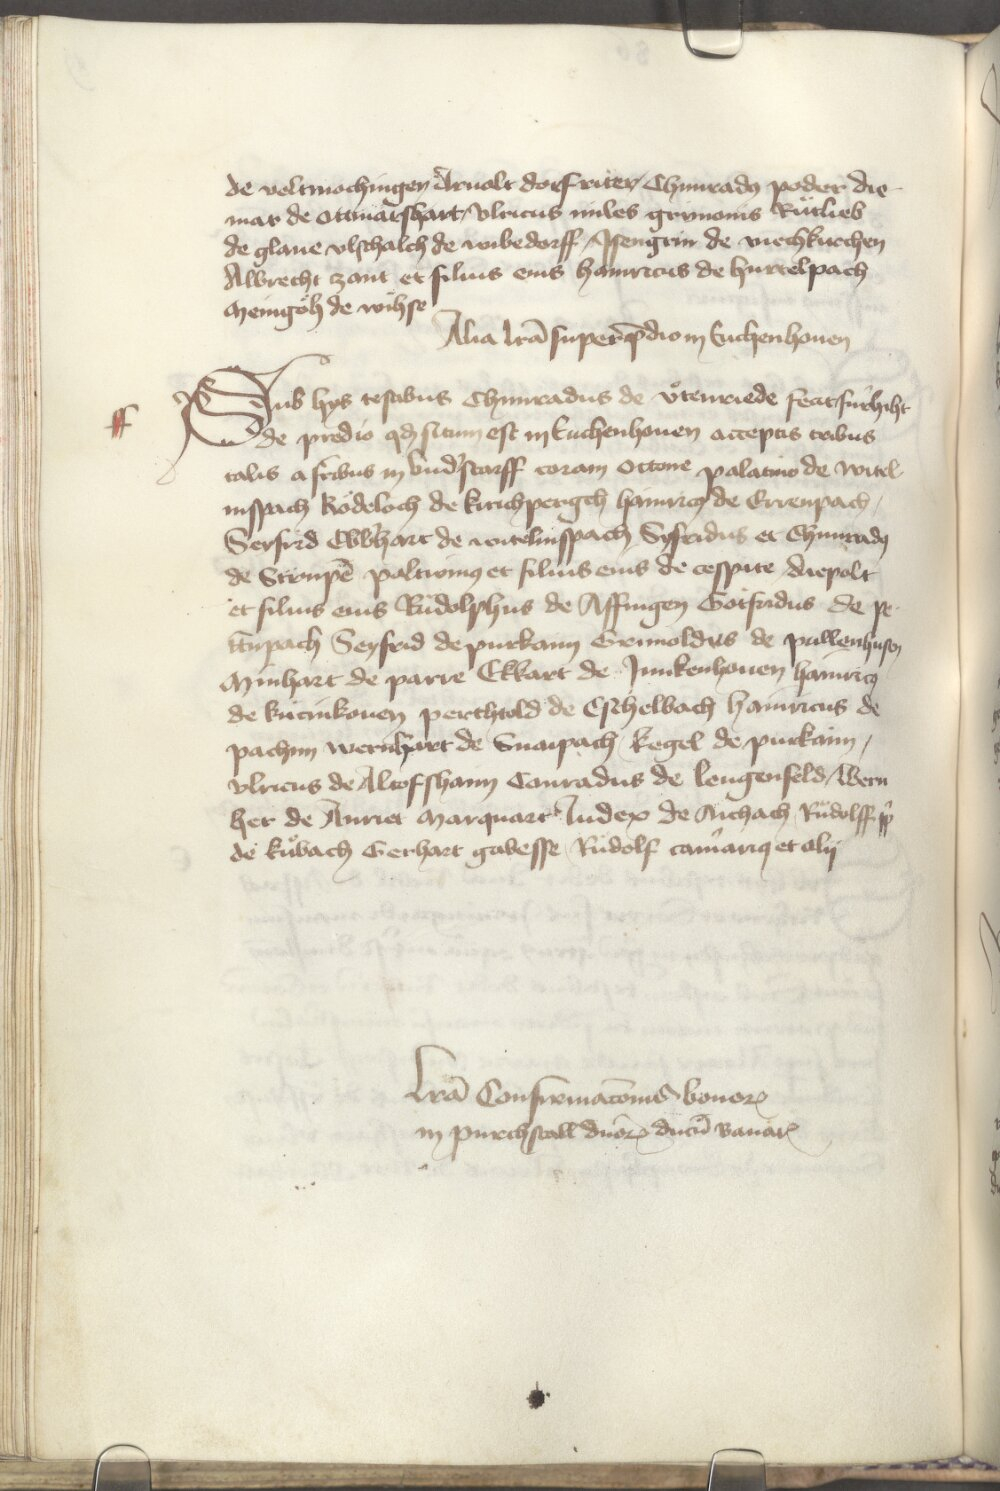 de veltmochingen Arnolt dorfriter Chunradus poder die
mar de ottmarshart Vlricus miles grymonis Rütlieb
de glane vlschalch de wibedorff Isengrin de viechkirchen
Albrecht zant et filius eius hainricus de hurtelpach
Meingöh de wihse
Alia lrā super p̄dio in Euchenhouen
Sub hys testibus Chunradus de vͦtenriede fecit furziht
de predio qd situm est in Euchenhouen acceptis tribus
talis a fribus in vnd'starff coram ottone palatino de witel
inspach Rödeloch de kirichpergch hainricus de Errenpach
Seyfrid Ebb'hart de witelinspach Syfridus et Chunradus
de Strupē et filius eius de cespite diepolt
et filius eius Rudolphus de Affingen Gotfridus de pe
Seyfrid de purkain Grimoldus de pullenhusen
Minhart de parre Ekkart de Junkenhouen hainricus
de perchtold de Eschelbach hainricus de
pachern wernhart de Snaitpach kegel de purkain
vlricus de Altofshaim Conradus de lengenfeld Wern
her de Anriet Marquart Judex de Aichach Rüdolff pp
de kübach Gerhart gabesse Rüdolf cam'arius et alij
lrā Confirmacōnis bonorꝝ
in purchstall dn̄orꝝ ducū Bauarꝝ